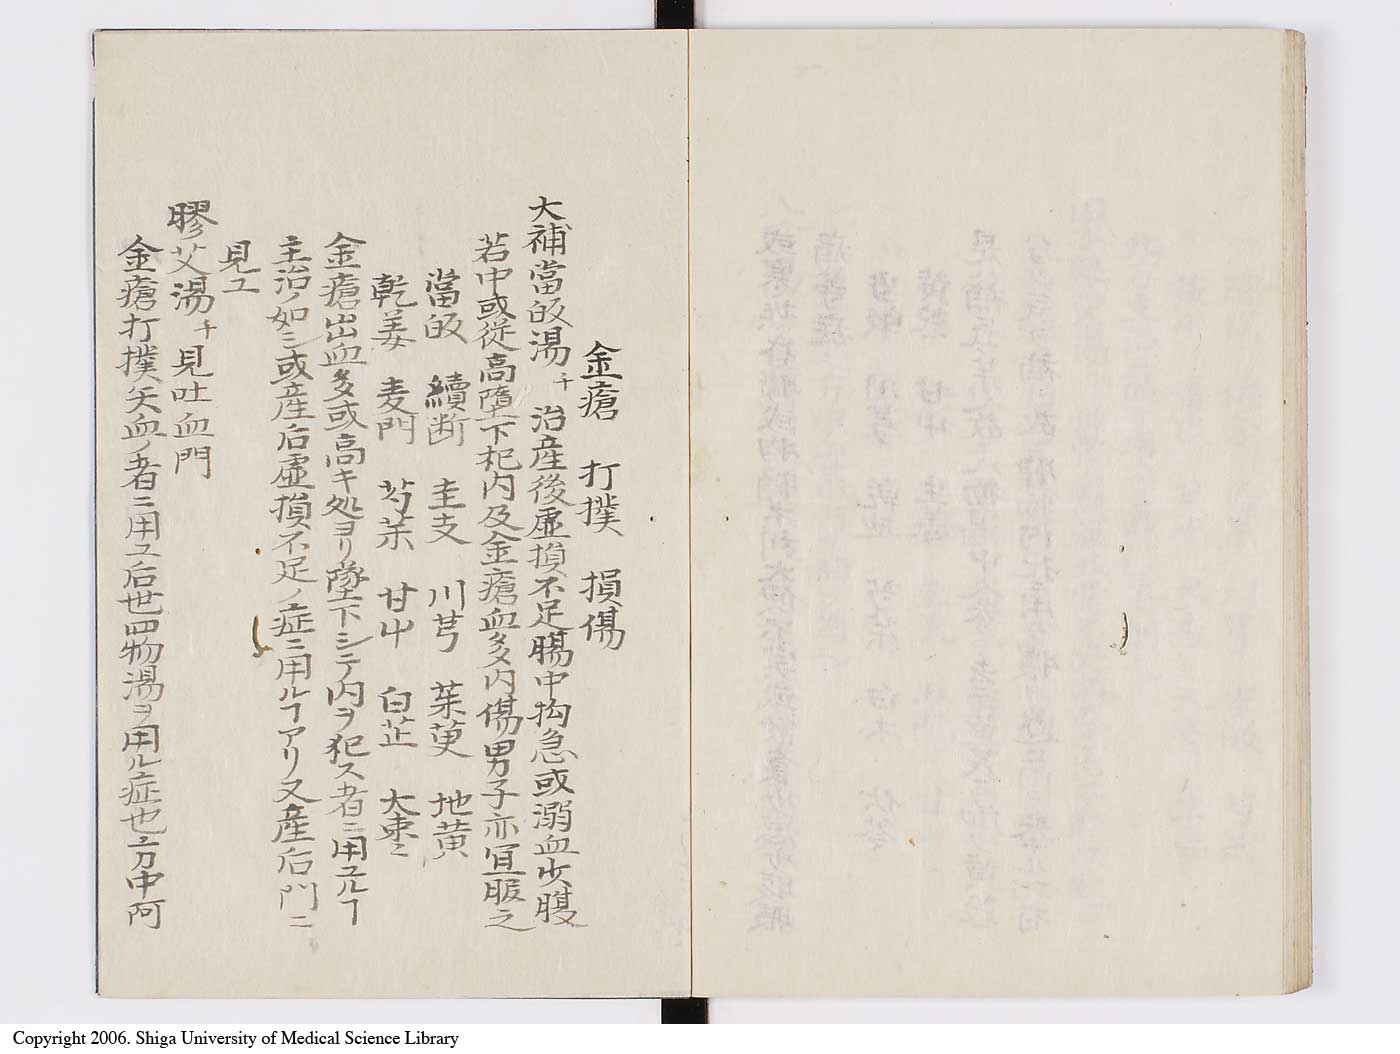 金瘡 打撲 損傷
大補當皈湯 千 治産後虚損不足腸中拘急或溺血少腹
若中或従高墮下犯内及金瘡血多内傷男子亦宜服之
當皈 續断 圭支 川芎 茱萸 地黄
乾姜 麦門 芍薬 甘艸 白芷 大棗
金瘡出血多或高キ処ヨリ墜下シテ内ヲ犯ス者ニ用ユルヿ
主治ノ如シ或産后虚損不足ノ症ニ用ルヿアリ又産后門ニ
見エ
膠艾湯 千 見吐血門
金瘡打撲失血ノ者ニ用ユ后世四物湯ヲ用ル症也方中阿
Copyright 2006. Shiga University of Medical Science Library